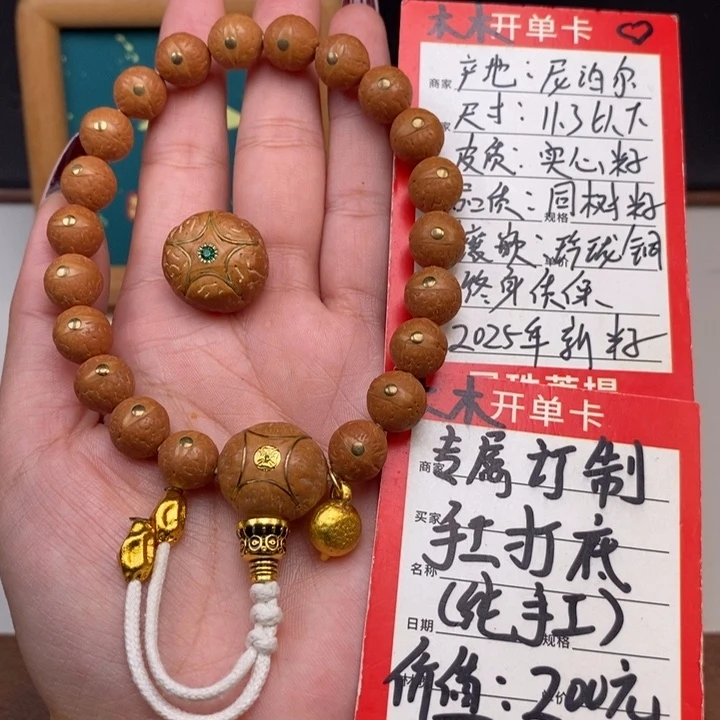 木木开单卡
商家 产地：尼泊尔
尺寸：11.3以下
皮质：实心籽
品质：同树籽
规格
镶嵌：玲珑/铜
单价
终身质保
2025年新籽
木木开单卡
商家 专属订制
买家 手工打底
名称
日期 (纯手工)
规格
价值：200元
单价